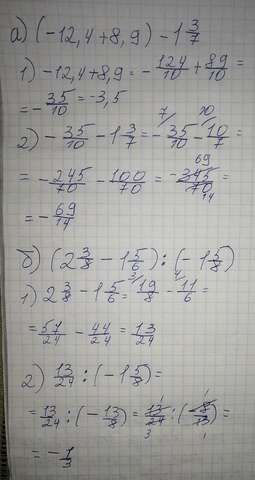 а) (-12,4+8,9) - 1 3/7
1) -12,4+8,9 = - 124/10 + 89/10 =
= - 35/10 = -3,5
2) - 35/10 - 1 3/7 = - 35/10 - 10/7 =
= - 245/70 - 100/70 = - 345/70 =
= - 69/14
б) (2 3/8 - 1 5/6) : (-1 5/8)
1) 2 3/8 - 1 5/6 = 19/8 - 11/6 =
= 57/24 - 44/24 = 13/24
2) 13/24 : (-1 5/8) =
= 13/24 : (- 13/8) = 13/24 : (- 8/13) =
= - 1/3